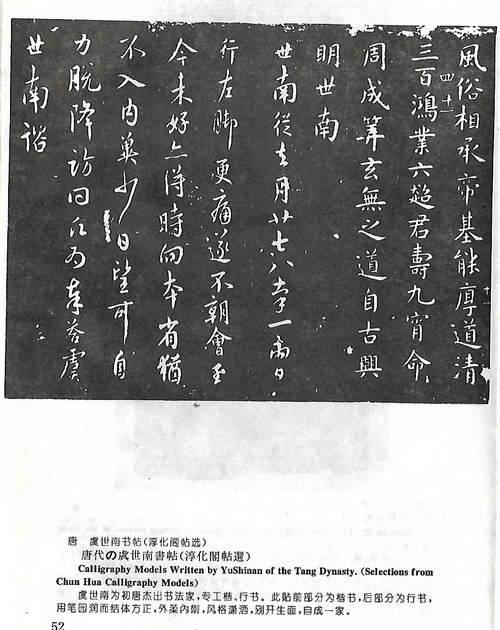 風俗相承帝基能厚道清
十一
三百鴻業六超君壽九霄命
四十二
周成筭玄無之道自古興
明世南
世南從去月廿七八率一兩日
行左脚更痛遂不朝會至
今未好亦得時向本省猶
不入内冀少日望可自
力脱降訪問為奉答虞
世南諮
唐 虞世南书帖(淳化阁帖选)
唐代の虞世南書帖(淳化閣帖選)
Calligraphy Models Written by YuShinan of the Tang Dynasty. (Selections from
Chun Hua Calligraphy Models)
虞世南为初唐杰出书法家,专工楷、行书。此贴前部分为楷书,后部分为行书,
用笔园润而结体方正,外柔内刚,风格潇洒,别开生面,自成一家。
52